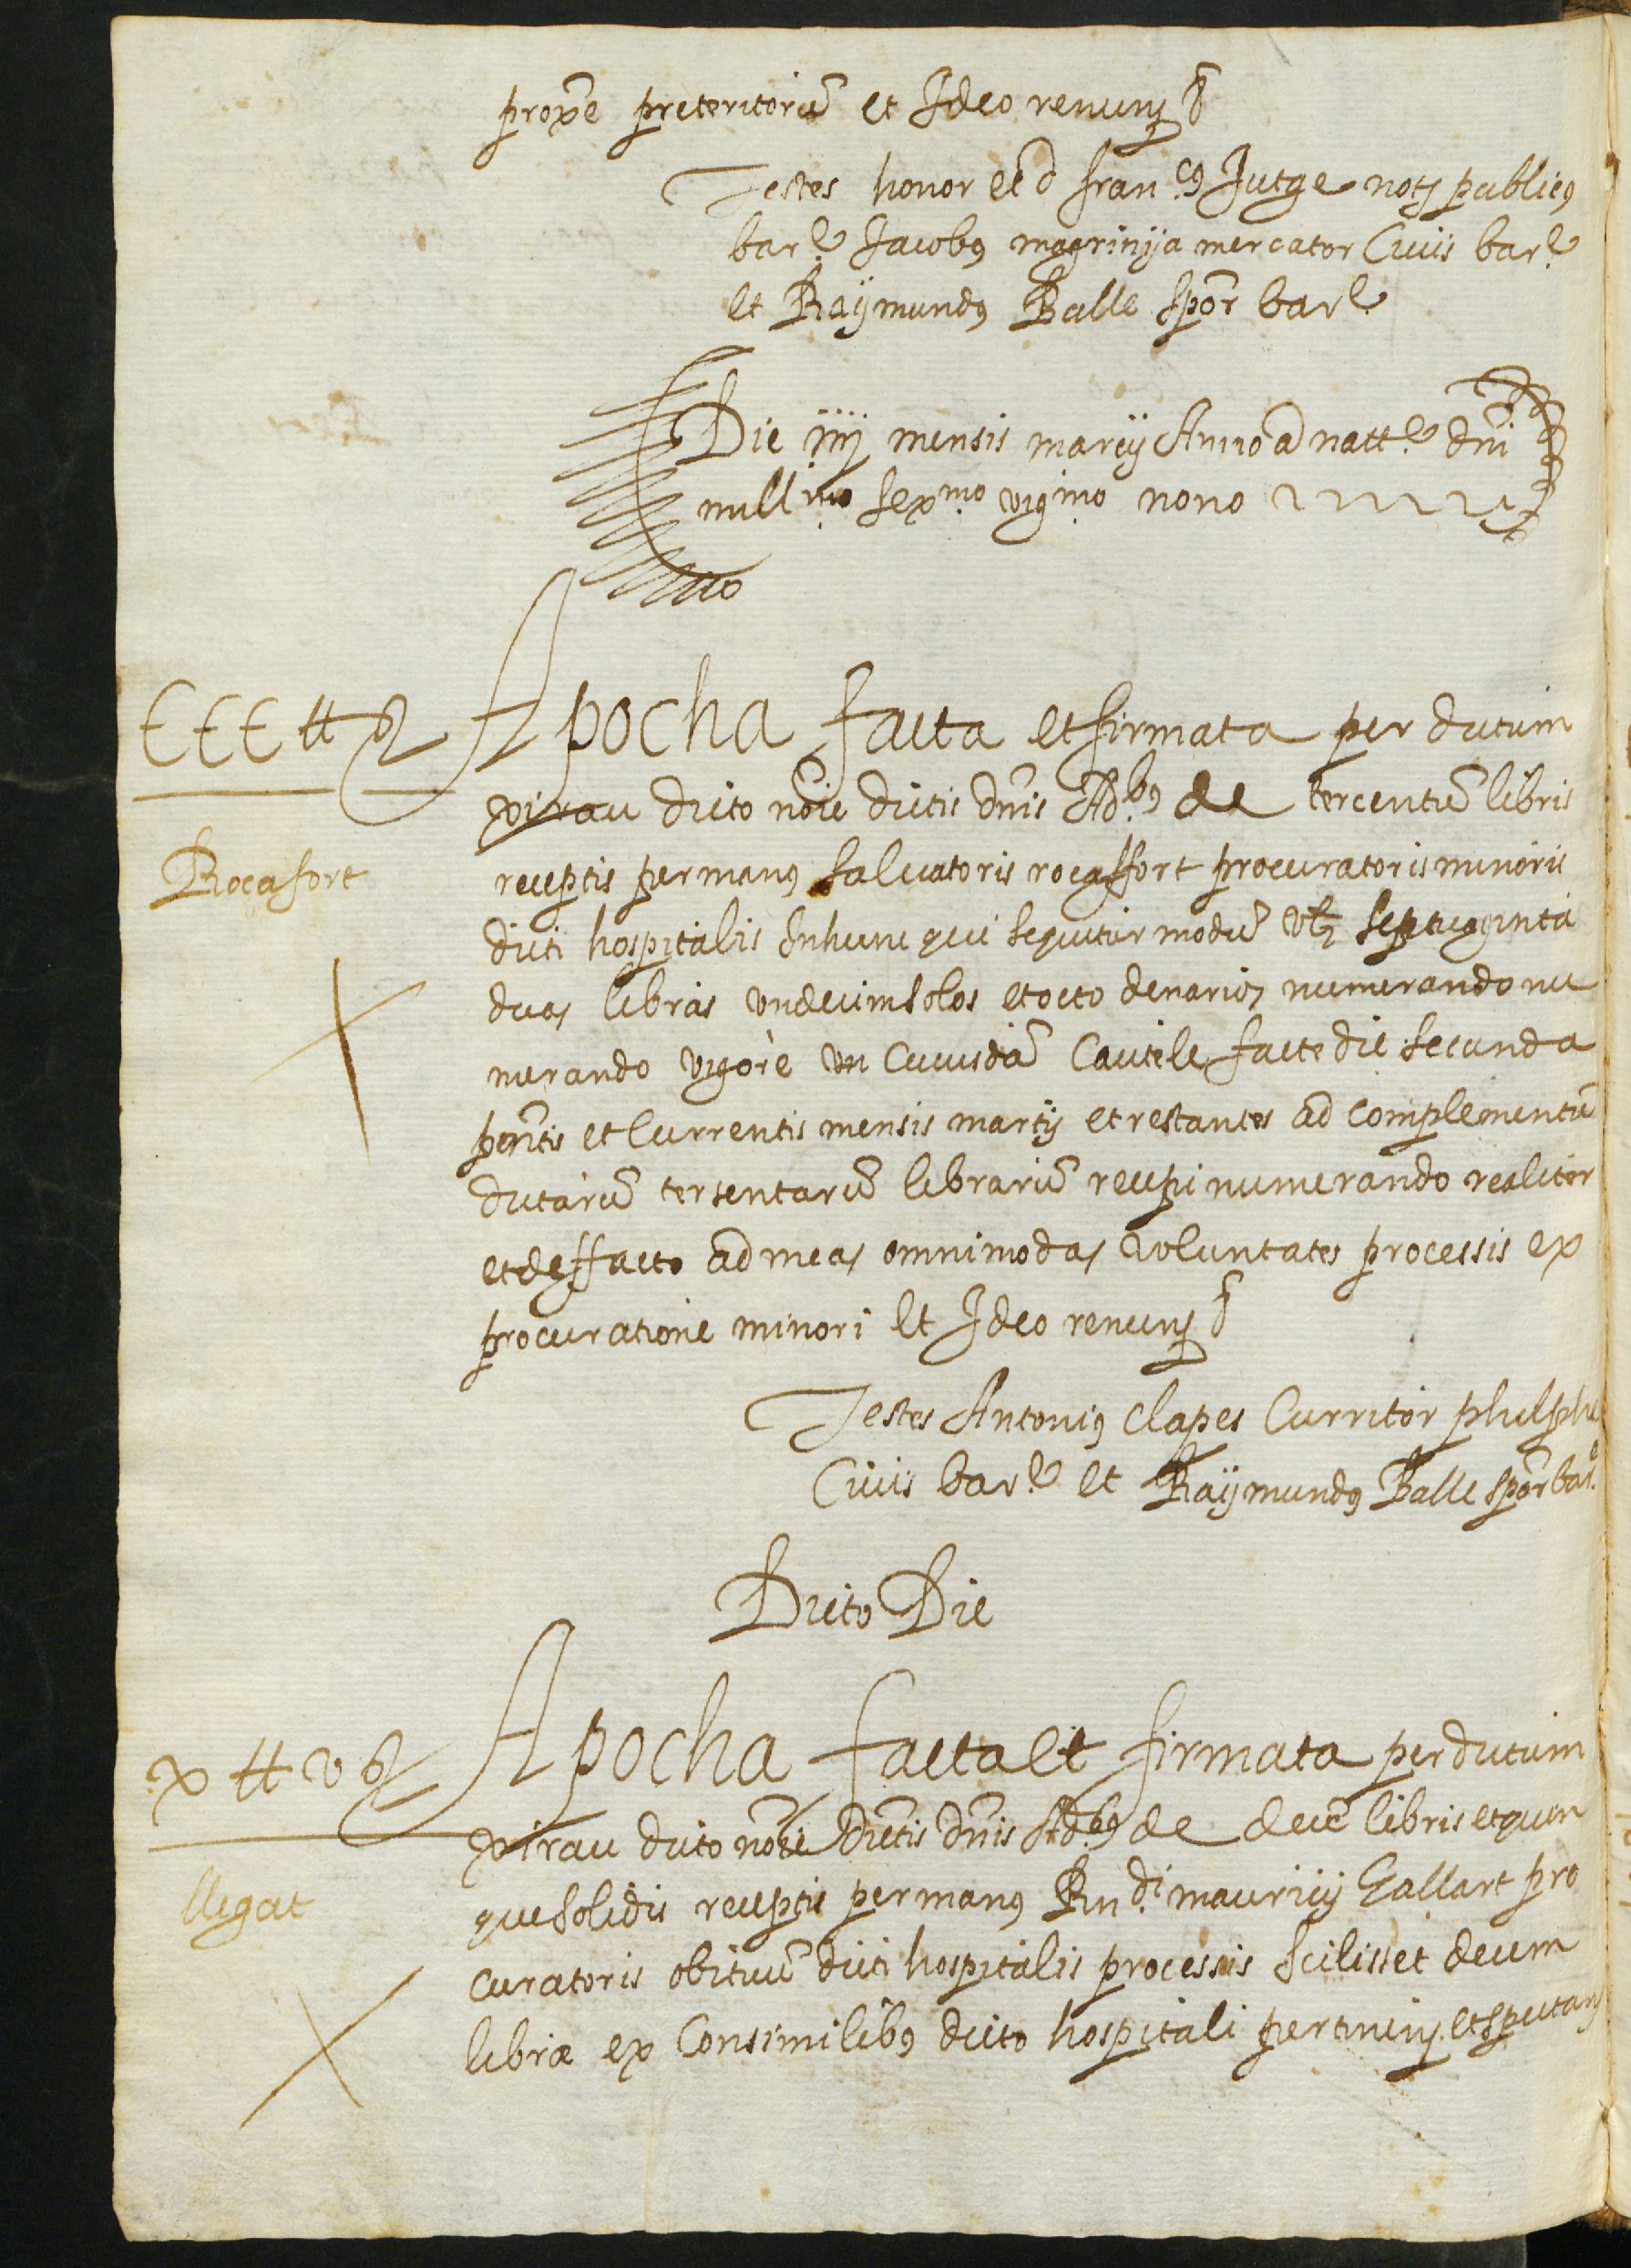 proxe preteritorũ et Ideo renunꝫ
Testes honor et d franᶜ⁹ Jutge notꝫ publicꝰ
barᵉ Jacobꝰ magrinya mercator Civis barᵉ
et Raÿmundꝰ Balle spor barᵉ
Die iiij mensis marcij Anno a natt.e dni
millmo sexmo vigmo nono
CCC ₶ Apocha facta et firmata per dictum
pirau dicto noie dictis dnis Ad.bꝰ de tercentũ libris
Rocafort
receptis per manꝰ salvatoris rocaffort procuratoris minoris
dicti hospitalis In hunc qui sequitur modũ vlꝫ septuaginta
duas libras undecim solos et octo denarios numerando nu
merando vigore un cuiusdã Cautele facte die secunda
pentis et Currentis mensis martij et restantes ad complementũ
dictarũ tersentarũ librarũ recepi numerando realiter
et de ffacto ad meas omnimodas voluntates processis ex
procuratione minori Et Ideo renunꝫ
Testes Antoniꝰ Clapes Curritor
Civis barᵉ et Raÿmundꝰ Balle spor barᵉ
Dicto Die
x ₶ v Apocha facta et firmata per dictum
pirau dicto noie dictis dnis Ad.bꝰ de decẽ libris et quin
llegat
que solidis receptis per manꝰ Rndi mauricij Gallart pro
curatoris obituũ dicti hospitalis processis scilisset decem
libræ ex Consimilibꝰ dicto hospitali pertinenꝫ et spectanꝫ